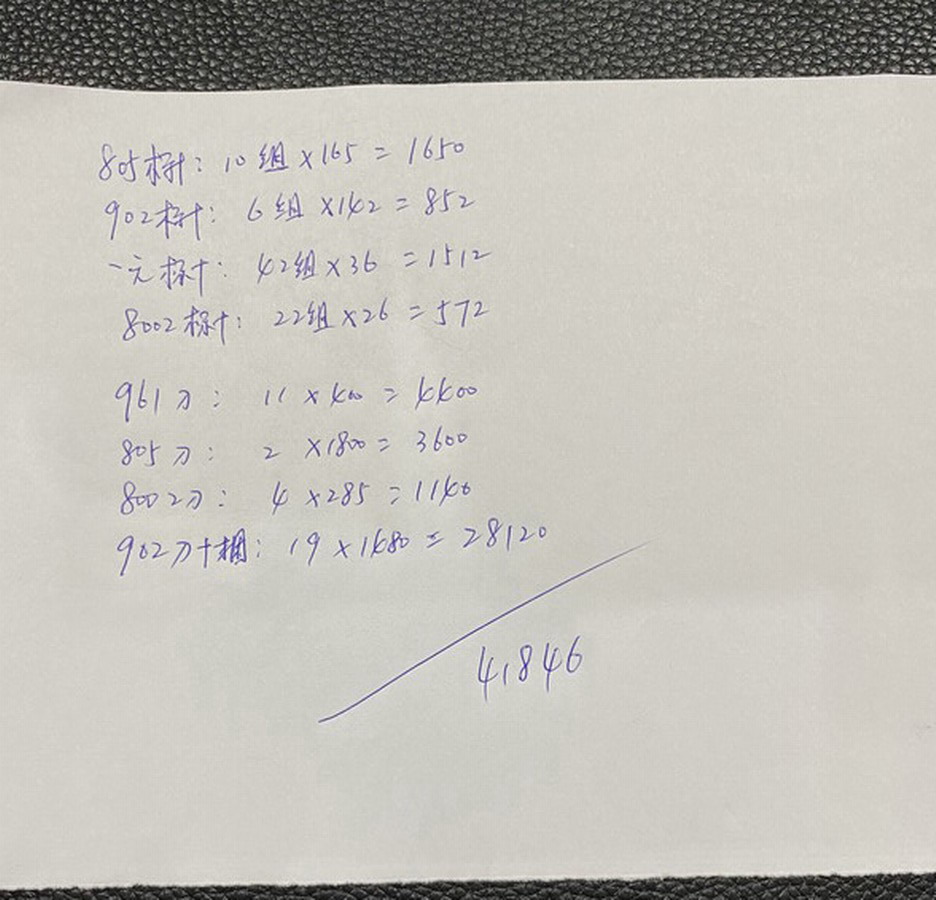 805标叶: 10组×165=1650
902标叶: 6组×142=852
一元标叶: 42组×36=1512
8002标叶: 22组×26=572
961刀: 11×400=4400
805刀: 2×1800=3600
8002刀: 4×285=1140
902刀+捆: 19×1480=28120
41846